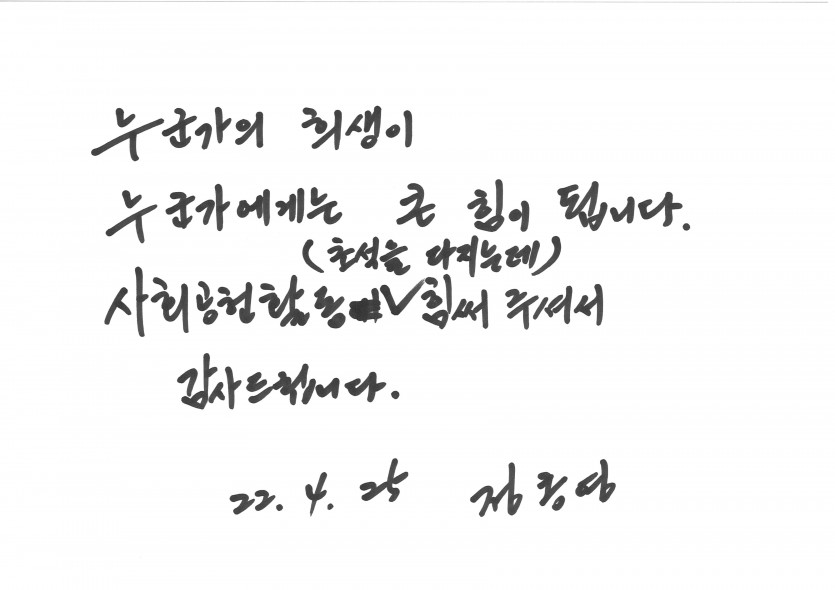 누군가의 희생이
누군가에게는 큰 힘이 됩니다.
(초석을 다지는데)
사회공헌활동 ✓ 힘써 주셔서
감사드립니다.
22. 4. 25